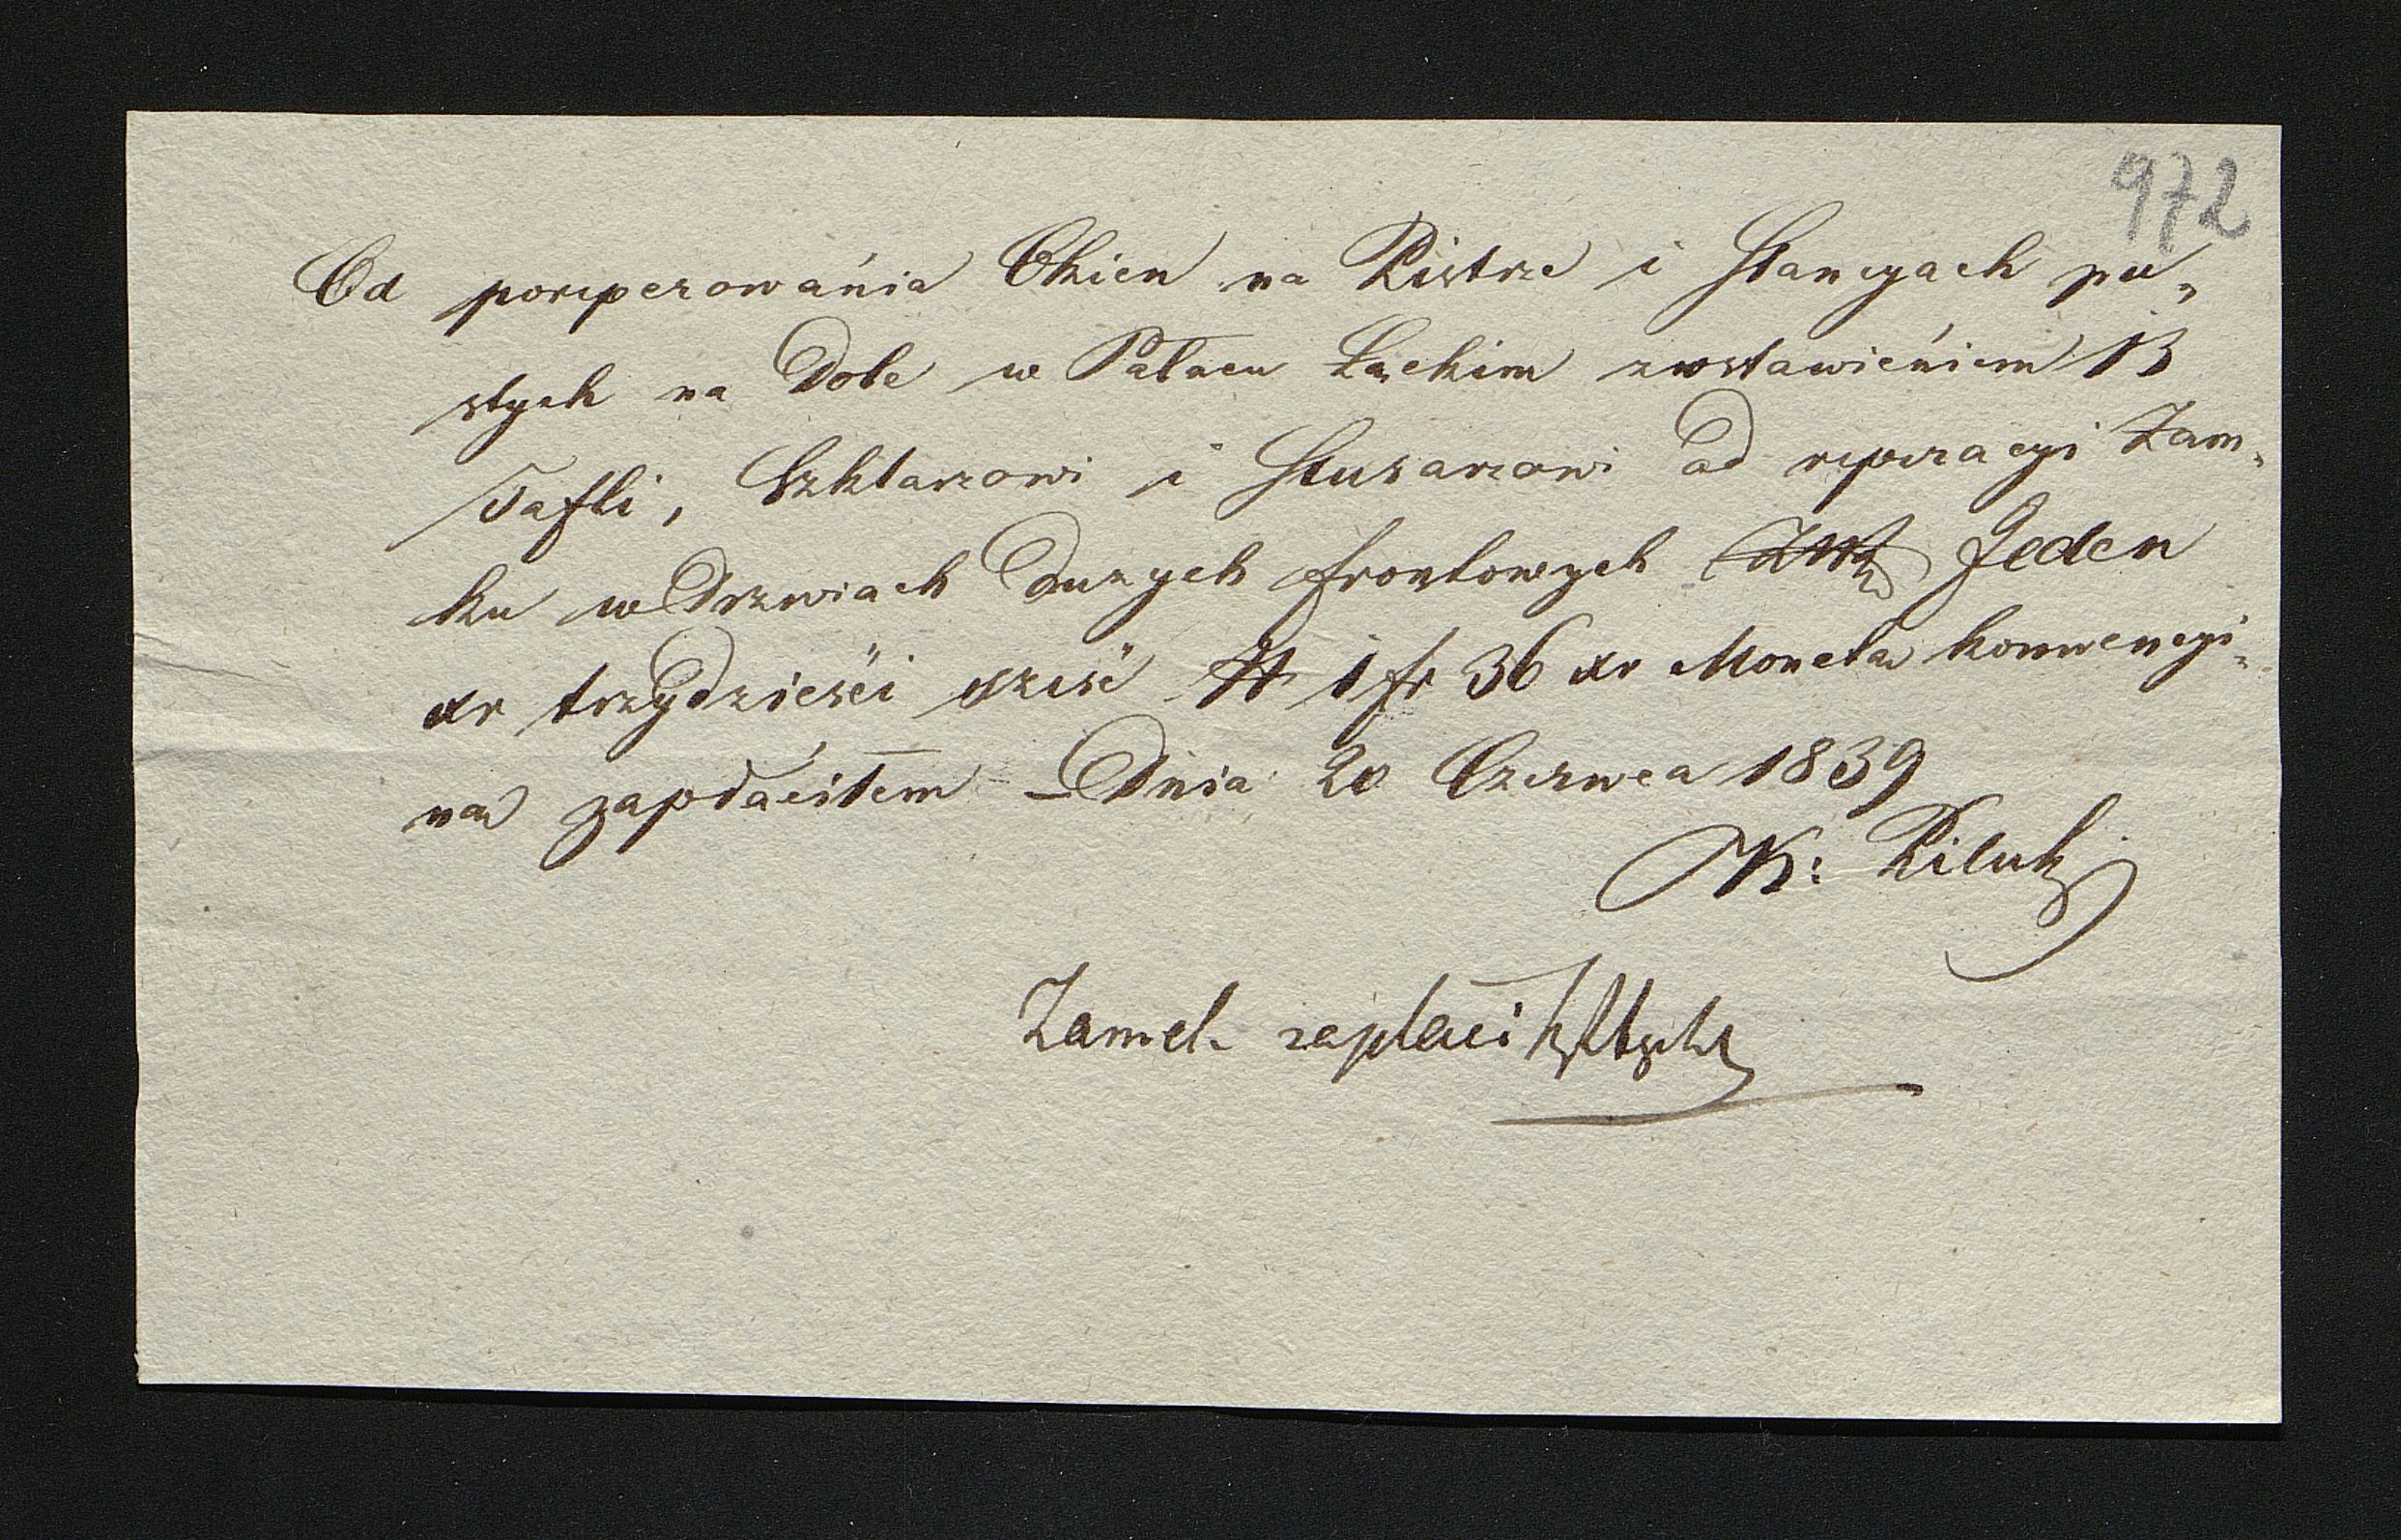 972
Od poreperowánia Okien na Pistrze i Stancyach pu„
stych na Dole w Pałacu Łąckim zwstawieńiem 13
Tafli, Szklarzowi i Slusarzowi od reperacyi Zam„
ku w Drzwiach Duzych frontowych Jeden
xr trzydzieści sześć 1 fr 36 xr Monetą konwencyi„
ną zapłaćiłem – Dnia 20 Czerwca 1839
K: Piluk
Zamel. zapłaci